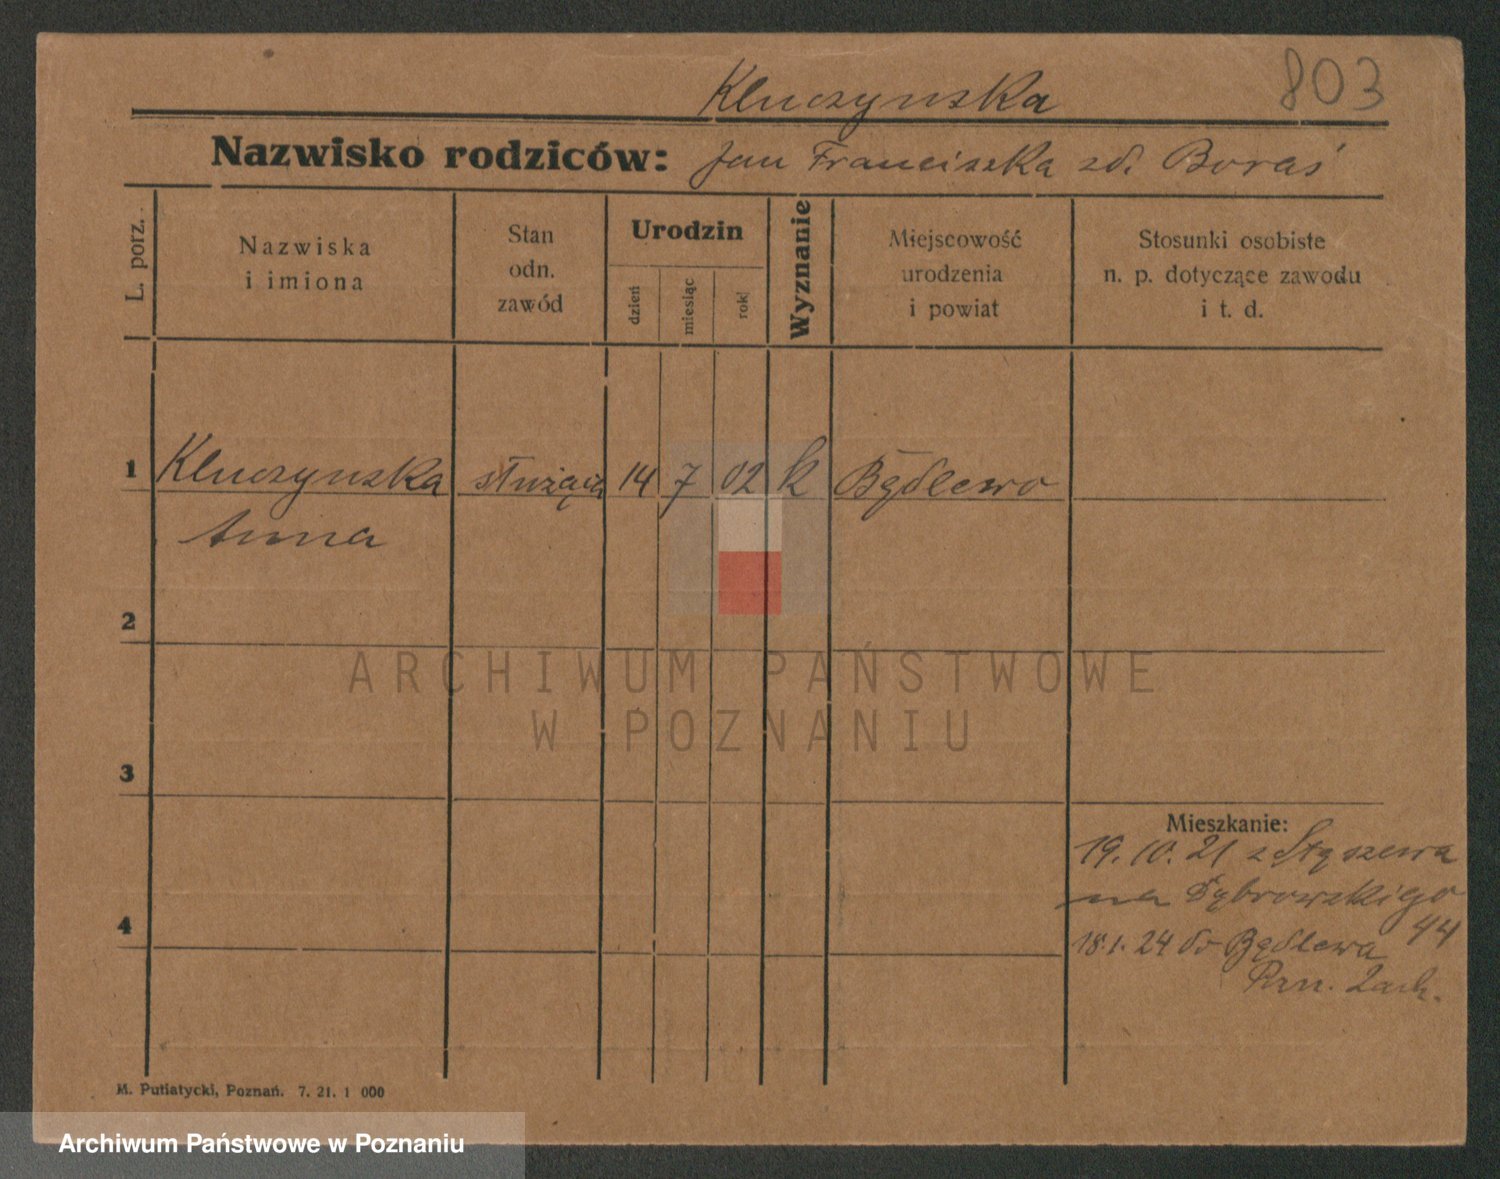 Kluczynska
803
Nazwisko rodziców: Jan Franciszka zd. Boraś
L. porz.
Nazwiska
i imiona
Stan
odn.
zawód
Urodzin
dzień
miesiąc
rok
Wyznanie
Miejscowość
urodzenia
i powiat
Stosunki osobiste
n. p. dotyczące zawodu
i t. d.
1 Kluczynska służąca 14 7 02 k Będlewo
Anna
2
3
4
Mieszkanie:
19.10.21 z Stęszewa
na Dąbrowskigo
44
18.1.24 do Będlewa
Pzn. Zach.
M. Putiatycki, Poznań. 7. 21. 1 000
ARCHIWUM PAŃSTWOWE
W POZNANIU
Archiwum Państwowe w Poznaniu